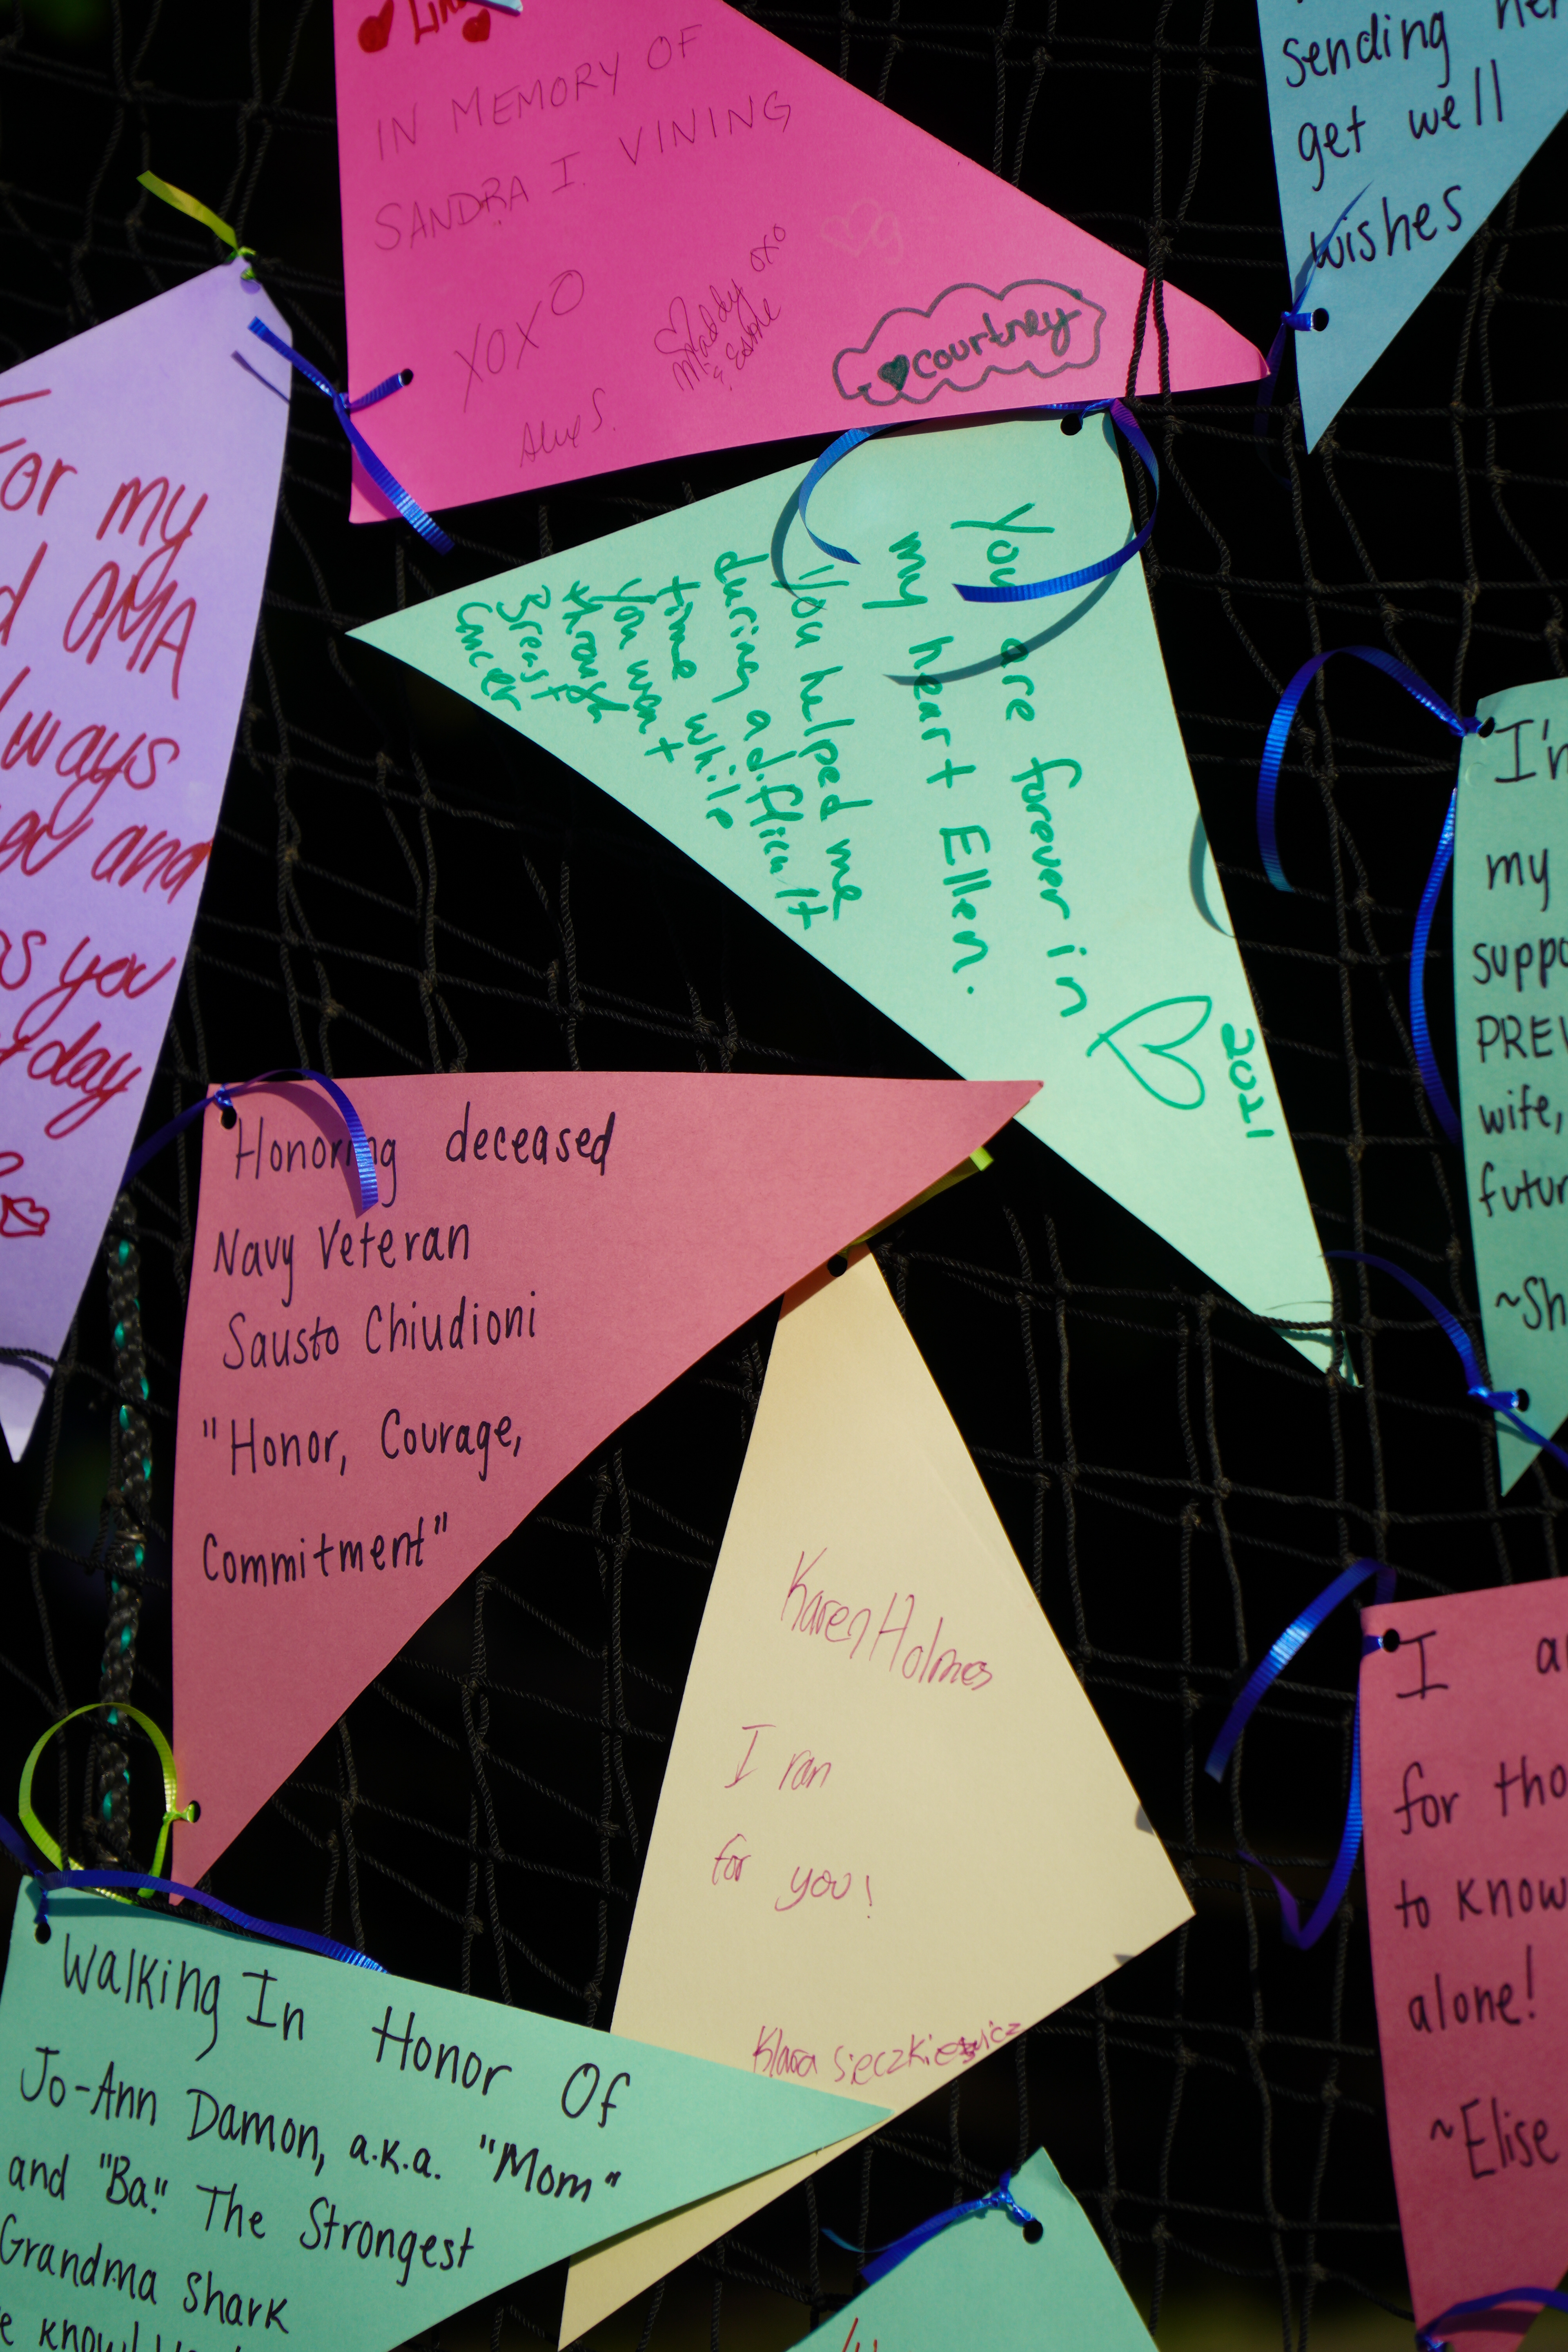 IN MEMORY OF
SANDRA I. VINING
XOXO
Maddy oxo
& Estelle
Alex S.
courtney
sending her
get well
wishes
For my
OMA
always
and
as you
day
You are forever in
my heart Ellen.
You helped me
during a difficult
time while
you want
through
Breast
Cancer
2021
I'm
my
PREV
wife,
futur
~Sh
Honoring deceased
Navy Veteran
Sausto Chiudioni
"Honor, Courage,
Commitment"
Karen Holmes
I ran
for you!
Klara Sieczkiewicz
I a
for tho
to know
alone!
~Elise
Walking In Honor Of
Jo-Ann Damon, a.k.a. "Mom"
and "Ba". The Strongest
Grandma Shark
know!